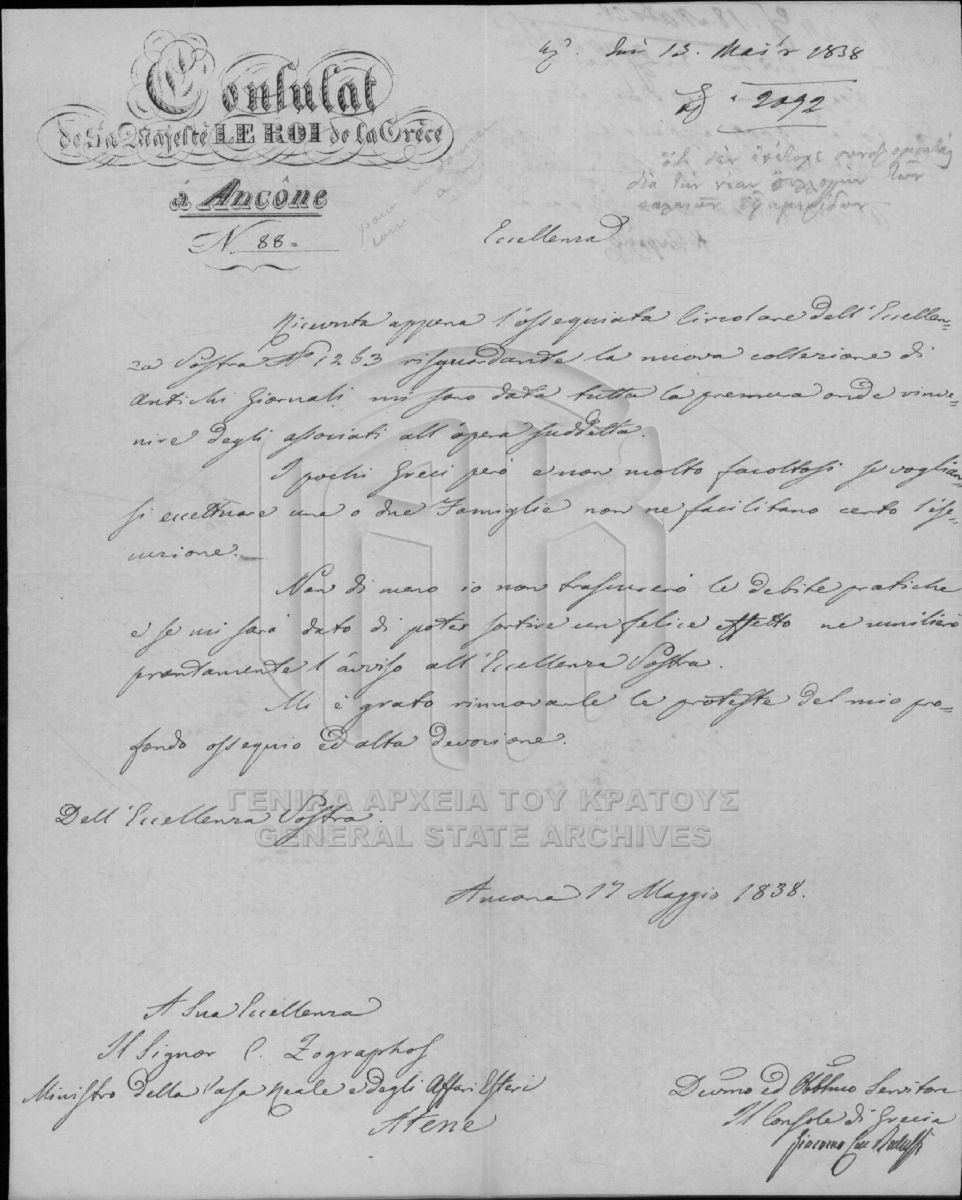 Consulat
de Sa Majesté LE ROI de la Grèce
à Ancône
N 88=
13. 1838
2092
ὅτι δὲν
διὰ τὴν νέαν συλλογὴν τῶν
παλαιῶν ἐφημερίδων
Eccellenza
Ricevuta appena l'ossequiata Circolare dell'Eccellen-
za Vostra No 1263 risguardante la nuova collezione di
antichi Giornali mi sono data tutta la premura onde rinve-
nire degli associati all'opera suddetta.
I pochi Greci però e non molto facoltosi se voglian-
si eccettuare una o due Famiglie non ne facilitano certo l'ese-
cuzione.
Non di meno io non trascurerò le debite pratiche
e se mi sarà dato di poter sortire un felice effetto ne umilierò
prontamente l'avviso all'Eccellenza Vostra.
Mi è grato rinnovarle le proteste del mio pro-
fondo ossequio ed alta devozione.
Dell'Eccellenza Vostra.
ΓΕΝΙΚΑ ΑΡΧΕΙΑ ΤΟΥ ΚΡΑΤΟΥΣ
GENERAL STATE ARCHIVES
Ancona 17 Maggio 1838.
A Sua Eccellenza
Il Signor C. Zographos
Ministro della Casa Reale e degli Affari Esteri
Atene
Devmo ed Obblmo Servitore
Il Console di Grecia
Giacomo